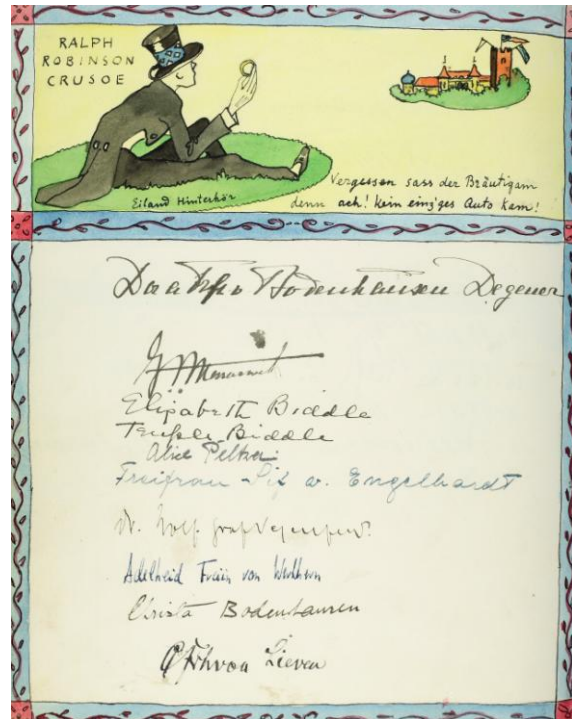 RALPH
ROBINSON
CRUSOE
Eiland Hinterhör
Vergessen sass der Bräutigam
denn ach! Kein einz'ges Auto kam!
Dorothea Bodenhausen Degener
Elisabeth Biddle
Temple Biddle
Alice
Freifrau v. Engelhardt
Dr. Wolf Graf
Adelheid Freiin von Werthern
Christa Bodenhausen
von Lieven